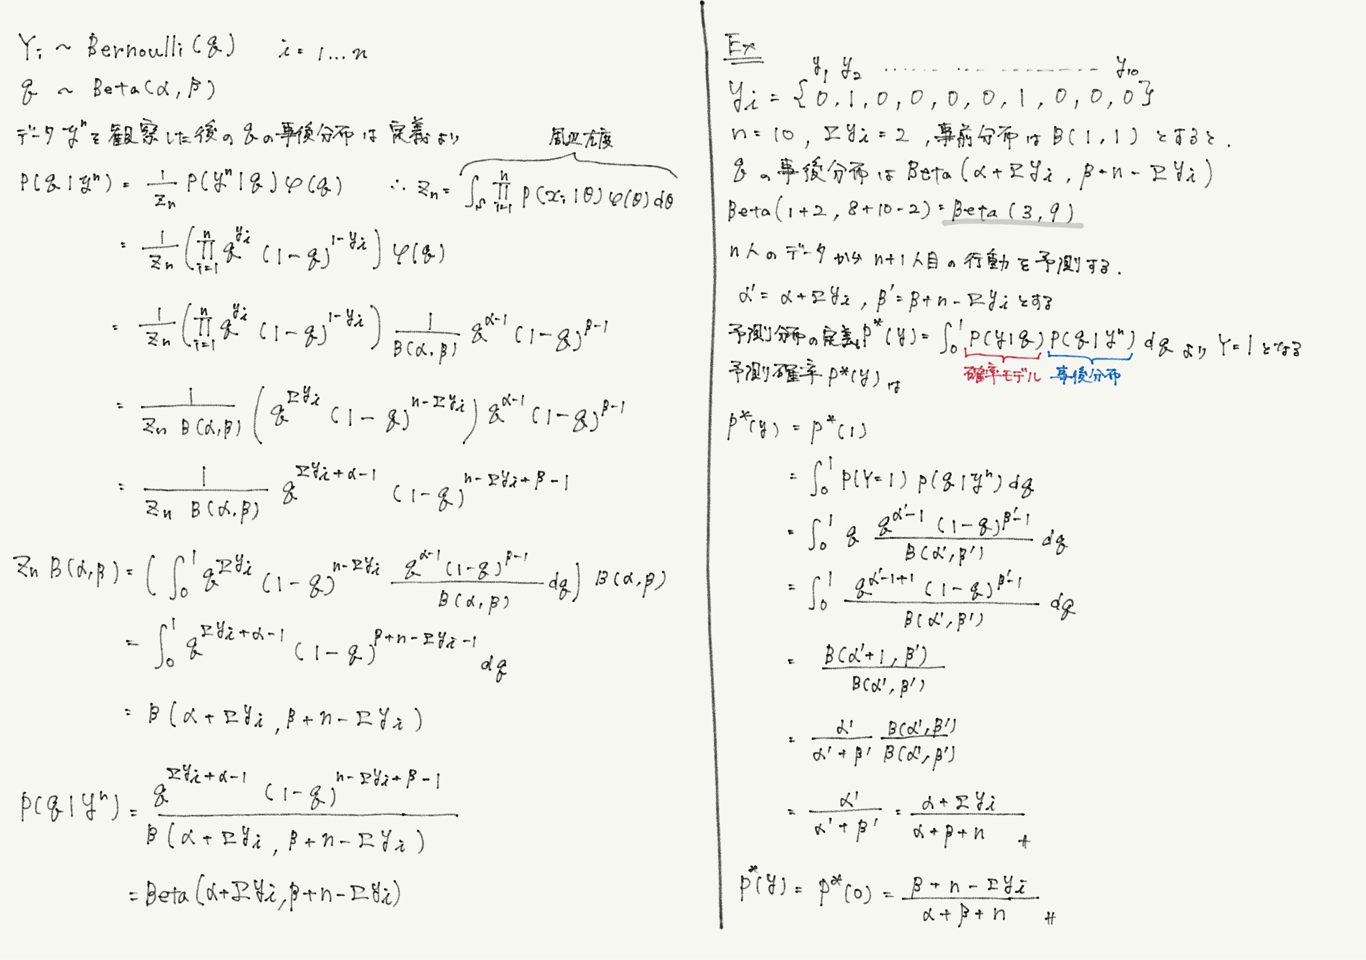 Yi ~ Bernoulli(q)  i = 1...n
q ~ Beta(α, β)
データ yⁿを観察した後の qの事後分布は定義より
周辺尤度
P(q|yⁿ) = 1/Zn P(yⁿ|q) φ(q)  ∴ Zn = ∫ₙ ∏ⁿᵢ₌₁ P(xi|θ)φ(θ)dθ
= 1/Zn (∏ⁿᵢ₌₁ q^yi (1-q)^(1-yi)) φ(q)
= 1/Zn (∏ⁿᵢ₌₁ q^yi (1-q)^(1-yi)) 1/B(α,β) q^(α-1) (1-q)^(β-1)
= 1/(Zn B(α,β)) (q^(Σyi) (1-q)^(n-Σyi)) q^(α-1) (1-q)^(β-1)
= 1/(Zn B(α,β)) q^(Σyi+α-1) (1-q)^(n-Σyi+β-1)
Zn B(α,β) = (∫₀¹ q^(Σyi) (1-q)^(n-Σyi) q^(α-1) (1-q)^(β-1)/B(α,β) dq) B(α,β)
= ∫₀¹ q^(Σyi+α-1) (1-q)^(β+n-Σyi-1) dq
= B(α+Σyi, β+n-Σyi)
P(q|yⁿ) = q^(Σyi+α-1) (1-q)^(n-Σyi+β-1) / B(α+Σyi, β+n-Σyi)
= Beta(α+Σyi, β+n-Σyi)
Ex
y₁ y₂ ........ y₁₀
yi = {0,1,0,0,0,0,1,0,0,0}
n=10, Σyi=2, 事前分布は B(1,1) とすると.
qの事後分布は Beta(α+Σyi, β+n-Σyi)
Beta(1+2, 8+10-2) = Beta(3,9)
n人のデータから n+1人目の行動を予測する.
α' = α+Σyi, β' = β+n-Σyi とする
予測分布の定義 P*(y) = ∫₀¹ P(y|q) P(q|yⁿ) dq より Y=1 となる
確率モデル 事後分布
予測確率 P*(y) は
P*(y) = P*(1)
= ∫₀¹ P(Y=1) P(q|yⁿ) dq
= ∫₀¹ q q^(α'-1) (1-q)^(β'-1) / B(α',β') dq
= ∫₀¹ q^(α'-1+1) (1-q)^(β'-1) / B(α',β') dq
= B(α'+1, β') / B(α', β')
= α'/(α'+β') B(α',β')/B(α',β')
= α'/(α'+β') = (α+Σyi)/(α+β+n) #
P*(y) = P*(0) = (β+n-Σyi)/(α+β+n) #